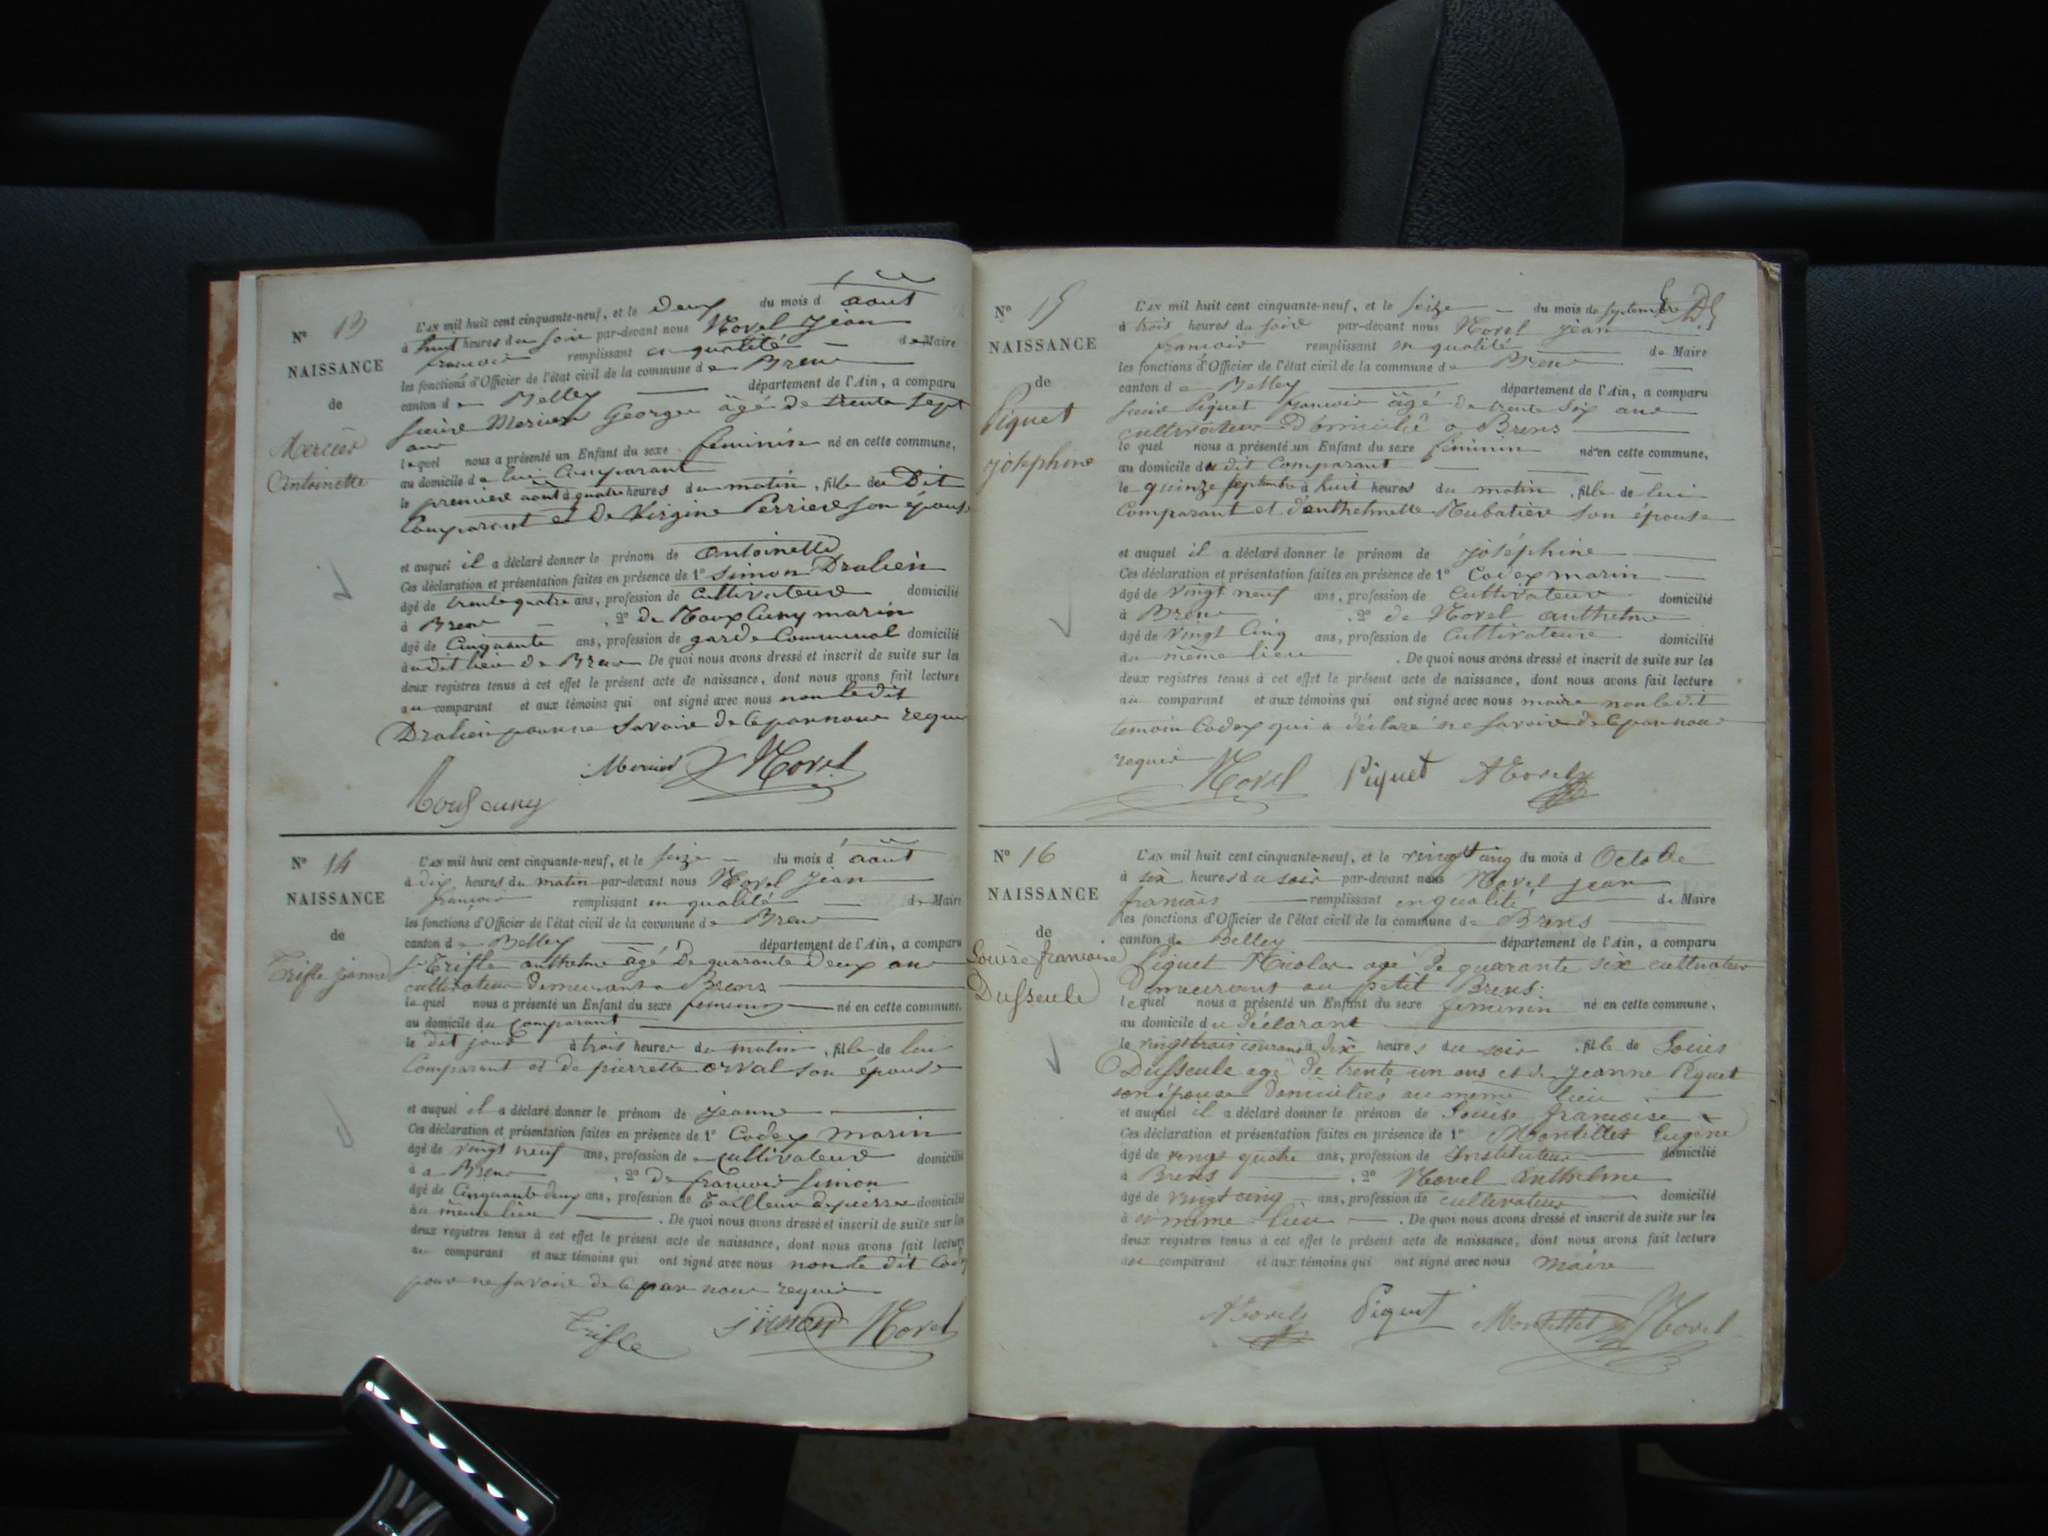 N° 13
NAISSANCE
de
Mercier
Antoinette
L'AN mil huit cent cinquante-neuf, et le deux du mois d aout
à huit heures du soir par-devant nous Novel Jean
francois remplissant en qualité de Maire
les fonctions d'Officier de l'état civil de la commune de Brens
canton de Belley département de l'Ain, a comparu
Mercier George âgé de trente sept
ans
lequel nous a présenté un Enfant du sexe féminin né en cette commune,
au domicile de lui Comparant
le premier aout à quatre heures du matin, fille du Dit
Comparant et de Virginie Perrier son épouse
et auquel il a déclaré donner le prénom de antoinette
Ces déclaration et présentation faites en présence de 1° Simon Dralien
âgé de trente quatre ans, profession de Cultivateur domicilié
à Brens , 2° de marin
âgé de Cinquante ans, profession de garde Communal domicilié
au dit lieu de Brens De quoi nous avons dressé et inscrit de suite sur les
deux registres tenus à cet effet le présent acte de naissance, dont nous avons fait lecture
au comparant et aux témoins qui ont signé avec nous non le dit
Dralien pour ne savoir de ce par nous requis
Mercier Novel
N° 14
NAISSANCE
de
Trifle jeanne
L'AN mil huit cent cinquante-neuf, et le seize du mois d aout
à dix heures du matin par-devant nous Novel Jean
françois remplissant en qualité de Maire
les fonctions d'Officier de l'état civil de la commune de Brens
canton de Belley département de l'Ain, a comparu
Trifle anthelme âgé de quarante deux ans
cultivateur demeurant a Brens
lequel nous a présenté un Enfant du sexe feminin né en cette commune,
au domicile du comparant
le dit jour à trois heures du matin, fille de lui
Comparant et de pierrette orval son epouse
et auquel il a déclaré donner le prénom de jeanne
Ces déclaration et présentation faites en présence de 1° Codex marin
âgé de vingt neuf ans, profession de cultivateur domicilié
à Brens , 2° de francois Simon
âgé de Cinquante deux ans, profession de Tailleur de pierre domicilié
au même lieu . De quoi nous avons dressé et inscrit de suite sur les
deux registres tenus à cet effet le présent acte de naissance, dont nous avons fait lecture
au comparant et aux témoins qui ont signé avec nous non le dit Codex
pour ne savoir de ce par nous requis
Trifle Simon Novel
N° 15
NAISSANCE
de
Piquet
joséphine
L'AN mil huit cent cinquante-neuf, et le seize du mois de septembre
à trois heures du soir par-devant nous Novel jean
francois remplissant en qualité de Maire
les fonctions d'Officier de l'état civil de la commune de Brens
canton de Belley département de l'Ain, a comparu
Piquet francois âgé de trente six ans
cultivateur domicilié a Brens
lequel nous a présenté un Enfant du sexe féminin né en cette commune,
au domicile du dit Comparant
le quinze septembre à huit heures du matin, fille de lui
Comparant et d'anthelmette son épouse
et auquel il a déclaré donner le prénom de joséphine
Ces déclaration et présentation faites en présence de 1° Codex marin
âgé de vingt neuf ans, profession de Cultivateur domicilié
à Brens , 2° de Novel anthelme
âgé de vingt Cinq ans, profession de Cultivateur domicilié
au même lieu . De quoi nous avons dressé et inscrit de suite sur les
deux registres tenus à cet effet le présent acte de naissance, dont nous avons fait lecture
au comparant et aux témoins qui ont signé avec nous maire non le dit
temoin Codex qui a déclaré ne savoir de ce par nous
requis
Novel Piquet A Novel
N° 16
NAISSANCE
de
Louise francoise
Dusseule
L'AN mil huit cent cinquante-neuf, et le vingt cinq du mois d Octobre
à six heures du soir par-devant nous Novel jean
francois remplissant en qualité de Maire
les fonctions d'Officier de l'état civil de la commune de Brens
canton de Belley département de l'Ain, a comparu
Piquet Nicolas agé de quarante six cultivateur
Demeurant au petit Brens
lequel nous a présenté un Enfant du sexe feminin né en cette commune,
au domicile du déclarant
le vingt trois courant à dix heures du soir, fille de Louis
Dusseule agé de trente un ans et de Jeanne Piquet
son épouse domiciliés au même lieu
et auquel il a déclaré donner le prénom de Louise francoise
Ces déclaration et présentation faites en présence de 1° Montillet Eugène
âgé de vingt quatre ans, profession de Instituteur domicilié
à Brens , 2° Novel Anthelme
âgé de vingt cinq ans, profession de cultivateur domicilié
à même lieu . De quoi nous avons dressé et inscrit de suite sur les
deux registres tenus à cet effet le présent acte de naissance, dont nous avons fait lecture
au comparant et aux témoins qui ont signé avec nous Maire
A Novel Piquet Montillet Novel